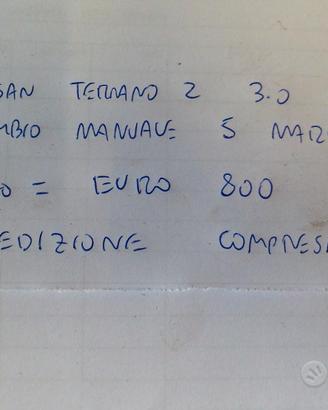 SAN TERRANO 2 3.0
MBIO MANUALE 5 MAR
O = EURO 800
EDIZIONE COMPRES